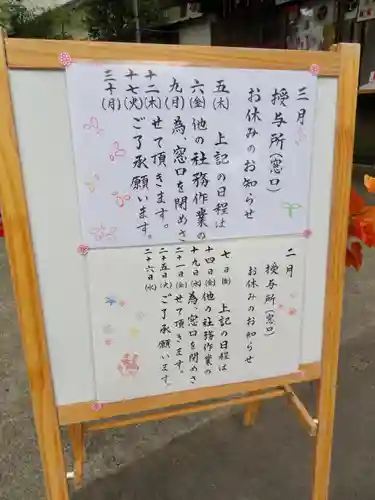 三月
授与所(窓口)
お休みのお知らせ
五(木) 上記の日程は
六(金) 他の社務作業の
九(月) 為、窓口を閉めさ
十二(木) せて頂きます。
十七(火) ご了承願います。
三十(月)
二月
授与所(窓口)
お休みのお知らせ
七日(金) 上記の日程は
十四日(金) 他の社務作業の
十九日(水) 為、窓口を閉めさ
二十一日(金) せて頂きます。
二十五日(火) ご了承願います。
二十六日(水)